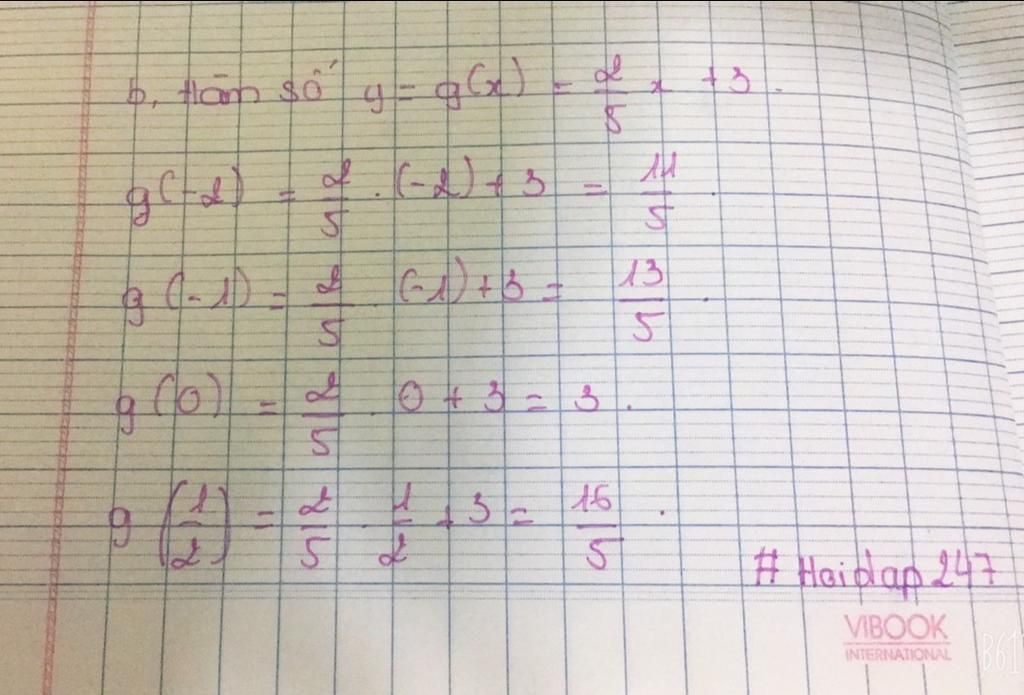 b, Hàm số y = g(x) = 2/5 x + 3.
g(-2) = 2/5 . (-2) + 3 = 11/5 .
g(-1) = 2/5 (-1) + 3 = 13/5 .
g(0) = 2/5 . 0 + 3 = 3 .
g(1/2) = 2/5 . 1/2 + 3 = 16/5 .
# Hoidap 247
VIBOOK
INTERNATIONAL
B61